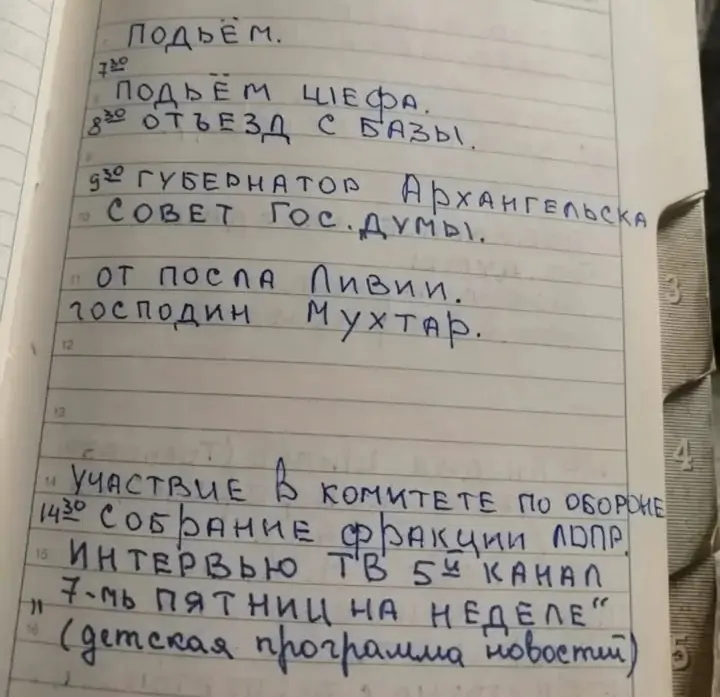 ПОДЬЁМ.
7³⁰
ПОДЬЁМ ШЕФА.
8³⁰ ОТЪЕЗД С БАЗЫ.
9³⁰ ГУБЕРНАТОР АРХАНГЕЛЬСКА
10 СОВЕТ ГОС. ДУМЫ.
11 ОТ ПОСЛА ЛИВИИ.
ГОСПОДИН МУХТАР.
12
13
14 УЧАСТВИЕ В КОМИТЕТЕ ПО ОБОРОНЕ
14³⁰ СОБРАНИЕ ФРАКЦИИ ЛДПР.
15 ИНТЕРВЬЮ ТВ 5й КАНАЛ
„7-МЬ ПЯТНИЦ НА НЕДЕЛЕ“
16 (детская программа новостий)
3
4
5